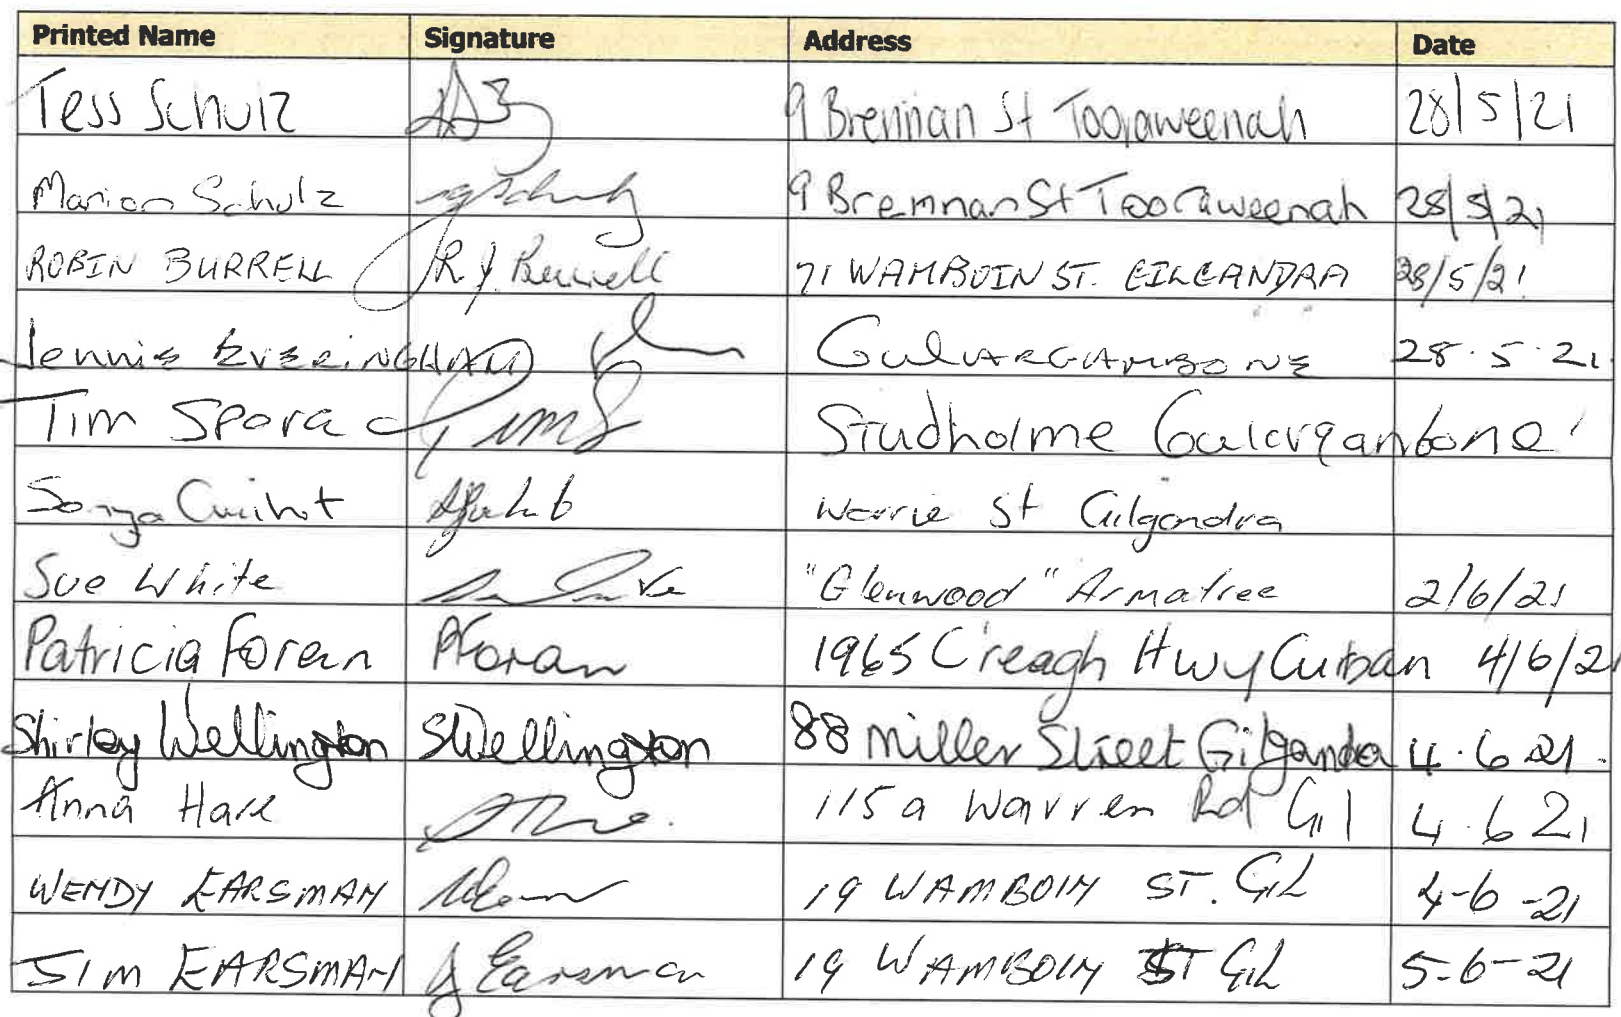 Printed Name Signature Address Date
Tess Schulz 9 Brennan St Tooraweenah 28/5/21
Marion Schulz 9 Bremnan St Tooraweenah 28/5/21
ROBIN BURRELL R J Burrell 71 WAMBOIN ST. GILGANDRA 28/5/21
Jennie EVERINGHAM GulARGAMBONE 28.5.21
Tim Spora Tim S Studholme Gulargambone
Sonya Worrie St Gilgandra
Sue White "Glenwood" Armatree 2/6/21
Patricia Foran PForan 1965 C'reagh Hwy Curban 4/6/21
Shirley Wellington SWellington 88 Miller Street Gilgandra 4.6.21.
Anna Hare 115a Warren Rd Gil 4.6.21
WENDY EARSMAN 19 WAMBOIN ST. GIL 4-6-21
JIM EARSMAN J Earsman 19 WAMBOIN ST GIL 5-6-21